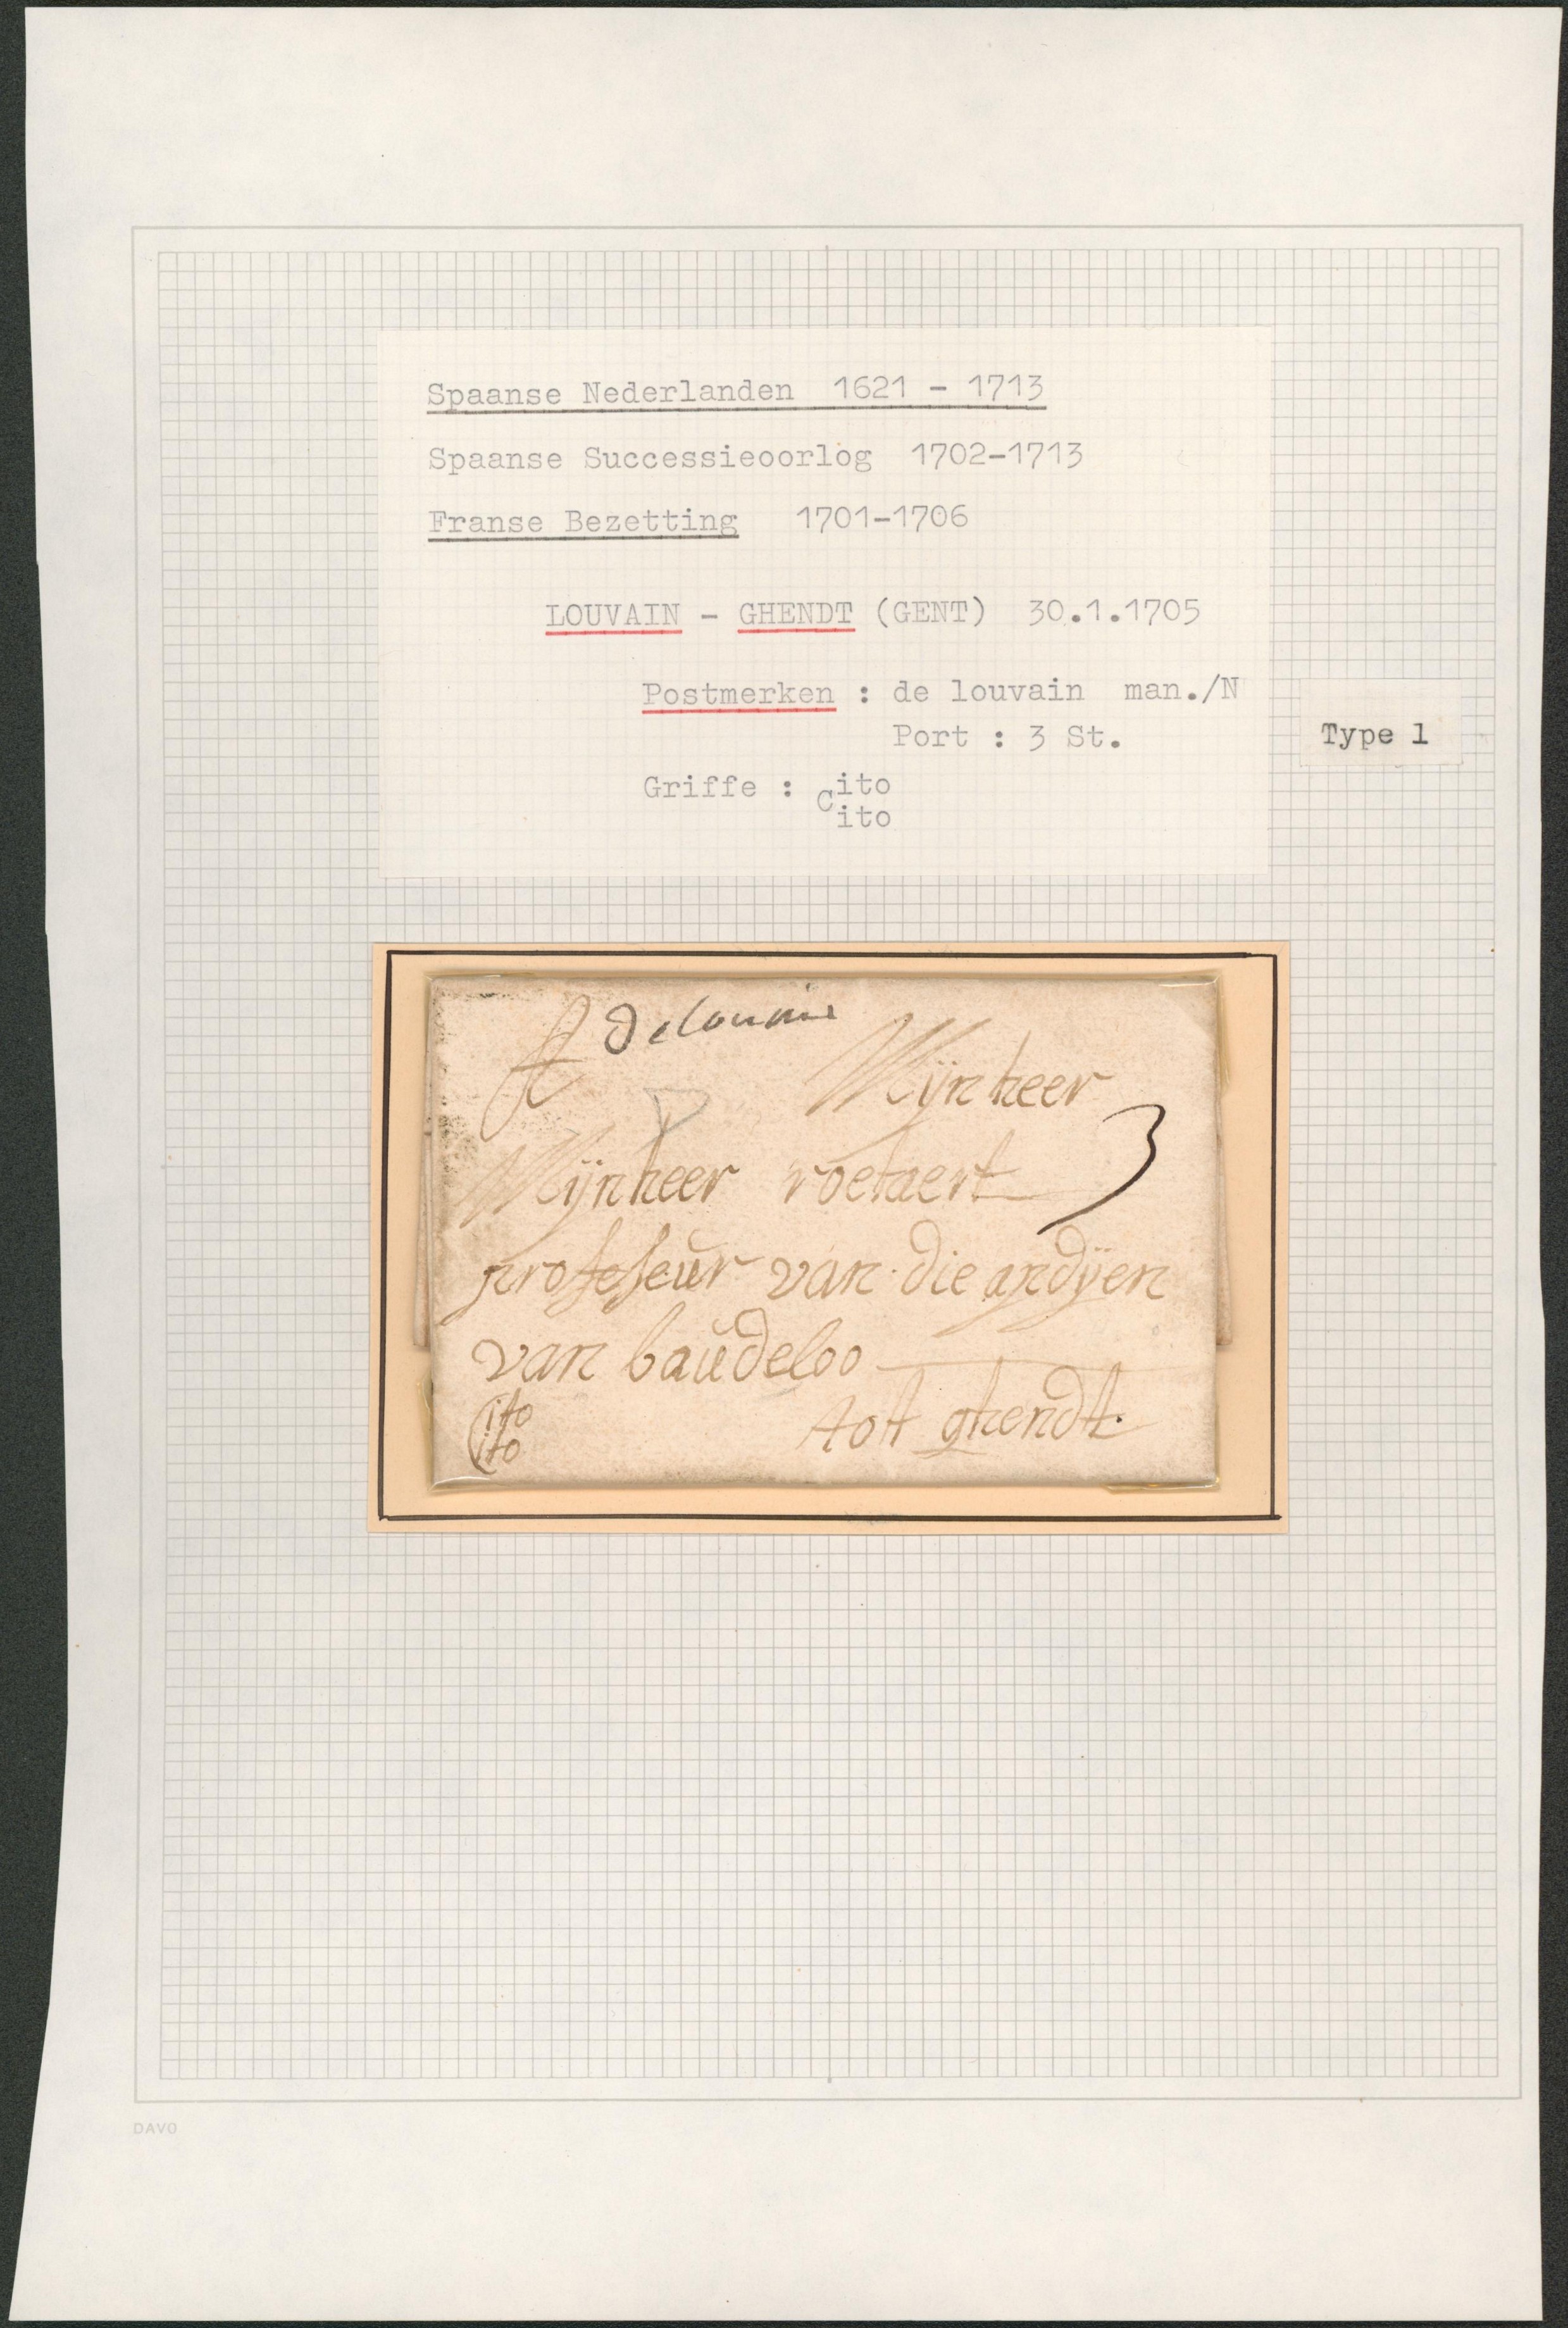 Spaanse Nederlanden 1621 - 1713
Spaanse Successieoorlog 1702-1713
Franse Bezetting 1701-1706
LOUVAIN - GHENDT (GENT) 30.1.1705
Postmerken : de louvain man./N
Port : 3 St.
Type 1
Griffe : Cito
ito
A de louvain
Mijnheer
Mijnheer roetaert 3
professeur van die apdyen
van baudeloo
Cito
ito
tot ghendt.
DAVO